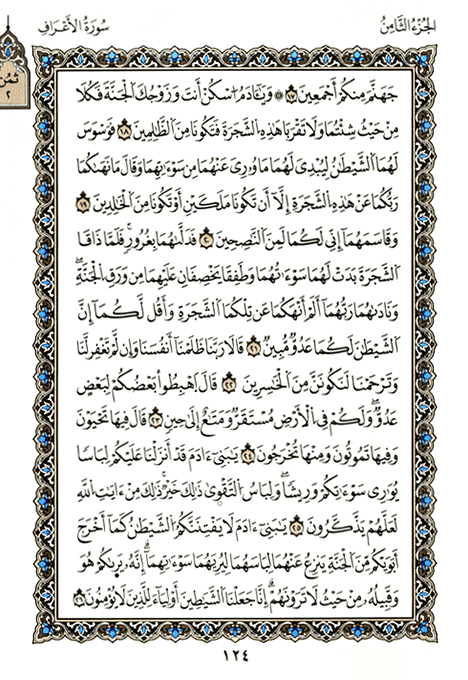 الجُزْءُ الثَّامِنُ
سُورَةُ الأَعْرَافِ
ثمن
٢
جَهَنَّمَ مِنكُمْ أَجْمَعِينَ ١٧ ۞ وَيَٰٓـَٔادَمُ اُ۟سْكُنْ أَنتَ وَزَوْجُكَ اَ۬لْجَنَّةَ فَكُلَا
مِنْ حَيْثُ شِئْتُمَا وَلَا تَقْرَبَا هَٰذِهِ اِ۬لشَّجَرَةَ فَتَكُونَا مِنَ اَ۬لظَّٰلِمِينَ ١٨ فَوَسْوَسَ
لَهُمَا اَ۬لشَّيْطَٰنُ لِيُبْدِيَ لَهُمَا مَا وُۥرِيَ عَنْهُمَا مِن سَوْءَٰتِهِمَا وَقَالَ مَا نَهَىٰكُمَا
رَبُّكُمَا عَنْ هَٰذِهِ اِ۬لشَّجَرَةِ إِلَّآ أَن تَكُونَا مَلَكَيْنِ أَوْ تَكُونَا مِنَ اَ۬لْخَٰلِدِينَ ١٩
وَقَاسَمَهُمَآ إِنِّي لَكُمَا لَمِنَ اَ۬لنَّٰصِحِينَ ٢٠ فَدَلَّىٰهُمَا بِغُرُورٖ فَلَمَّا ذَاقَا
اَ۬لشَّجَرَةَ بَدَتْ لَهُمَا سَوْءَٰتُهُمَا وَطَفِقَا يَخْصِفَٰنِ عَلَيْهِمَا مِن وَرَقِ اِ۬لْجَنَّةِ
وَنَادَىٰهُمَا رَبُّهُمَآ أَلَمْ أَنْهَكُمَا عَن تِلْكُمَا اَ۬لشَّجَرَةِ وَأَقُل لَّكُمَآ إِنَّ
اَ۬لشَّيْطَٰنَ لَكُمَا عَدُوّٞ مُّبِينٞ ٢١ قَالَا رَبَّنَا ظَلَمْنَآ أَنفُسَنَا وَإِن لَّمْ تَغْفِرْ لَنَا
وَتَرْحَمْنَا لَنَكُونَنَّ مِنَ اَ۬لْخَٰسِرِينَ ٢٢ قَالَ اَ۪هْبِطُواْ بَعْضُكُمْ لِبَعْضٍ
عَدُوّٞ وَلَكُمْ فِي اِ۬لْأَرْضِ مُسْتَقَرّٞ وَمَتَٰعٌ إِلَىٰ حِينٖ ٢٣ قَالَ فِيهَا تَحْيَوْنَ
وَفِيهَا تَمُوتُونَ وَمِنْهَا تُخْرَجُونَ ٢٤ يَٰبَنِيٓ ءَادَمَ قَدْ أَنزَلْنَا عَلَيْكُمْ لِبَاسٗا
يُوَٰرِي سَوْءَٰتِكُمْ وَرِيشٗا وَلِبَاسَ اَ۬لتَّقْوَىٰ ذَٰلِكَ خَيْرٞ ذَٰلِكَ مِنْ ءَايَٰتِ اِ۬للَّهِ
لَعَلَّهُمْ يَذَّكَّرُونَ ٢٥ يَٰبَنِيٓ ءَادَمَ لَا يَفْتِنَنَّكُمُ اُ۬لشَّيْطَٰنُ كَمَآ أَخْرَجَ
أَبَوَيْكُم مِّنَ اَ۬لْجَنَّةِ يَنزِعُ عَنْهُمَا لِبَاسَهُمَا لِيُرِيَهُمَا سَوْءَٰتِهِمَآ إِنَّهُۥ يَرَىٰكُمْ هُوَ
وَقَبِيلُهُۥ مِنْ حَيْثُ لَا تَرَوْنَهُمْ إِنَّا جَعَلْنَا اَ۬لشَّيَٰطِينَ أَوْلِيَآءَ لِلَّذِينَ لَا يُؤْمِنُونَ ٢٦
١٢٤